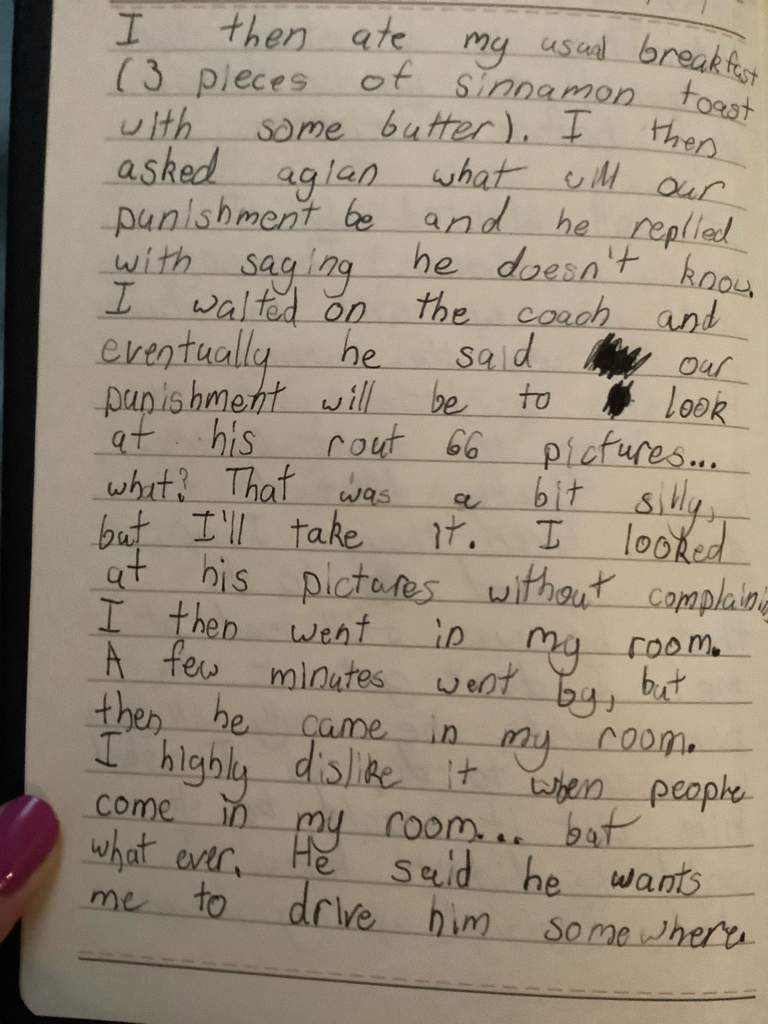 I then ate my usual breakfast
(3 pieces of sinnamon toast
with some butter). I then
asked agian what will our
punishment be and he replied
with saging he doesn't know.
I waited on the coach and
eventually he said our
punishment will be to look
at his rout 66 pictures...
what? That was a bit silly,
but I'll take it. I looked
at his pictares without complaining
I then went in my room.
A few minutes went by, but
then he came in my room.
I highly dislike it when people
come in my room... bat
what ever. He said he wants
me to drive him somewhere.